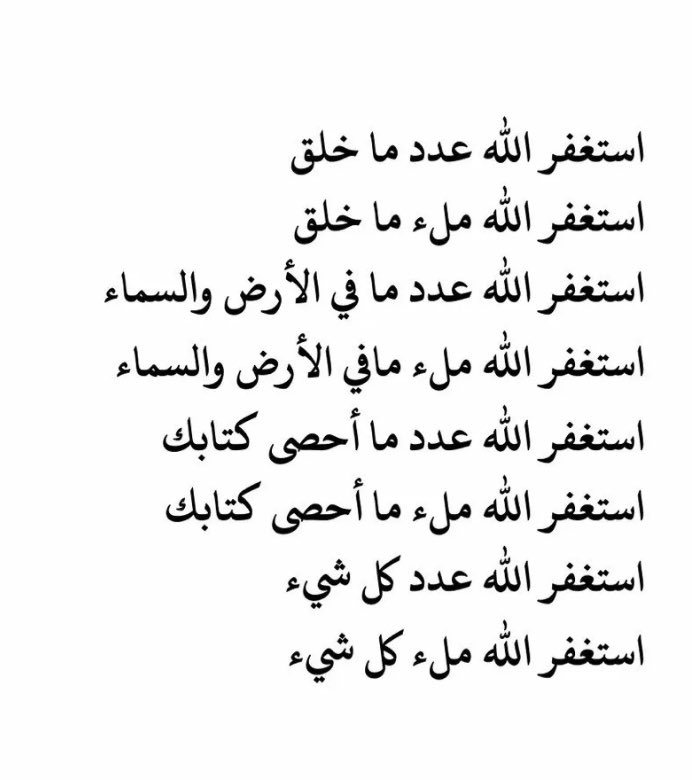 استغفر الله عدد ما خلق
استغفر الله ملء ما خلق
استغفر الله عدد ما في الأرض والسماء
استغفر الله ملء مافي الأرض والسماء
استغفر الله عدد ما أحصى كتابك
استغفر الله ملء ما أحصى كتابك
استغفر الله عدد كل شيء
استغفر الله ملء كل شيء